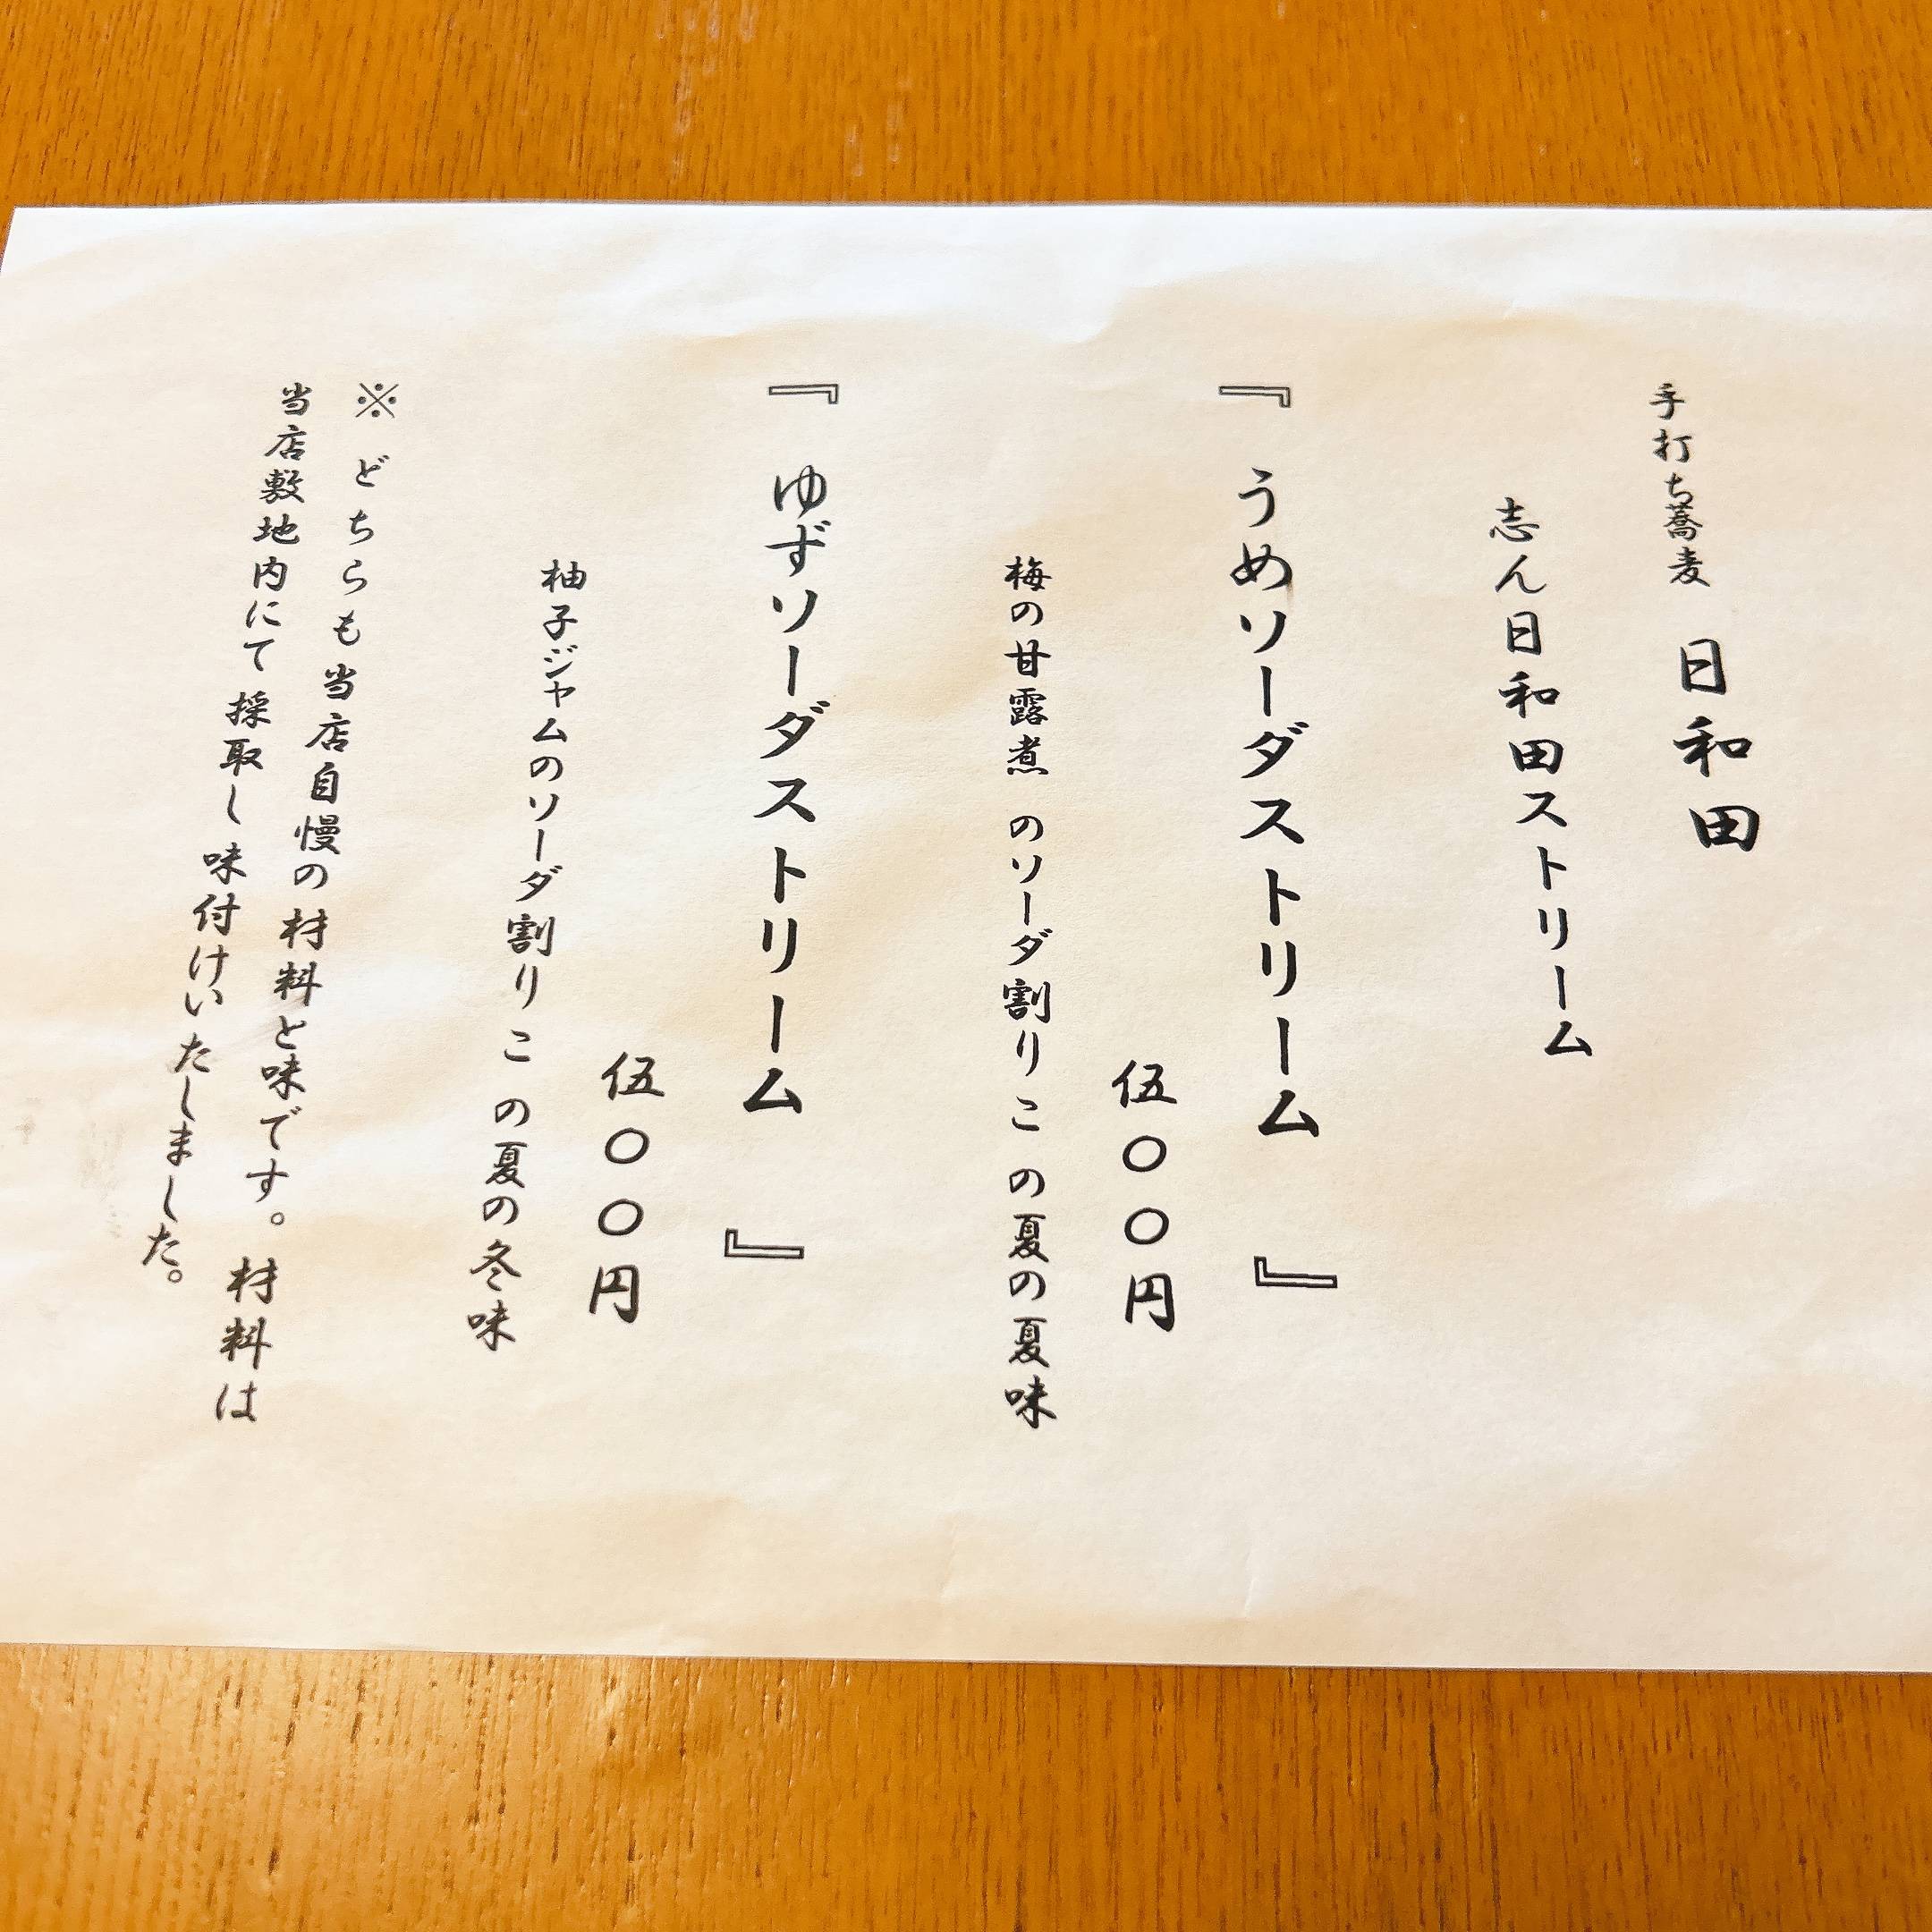 手打ち蕎麦 日和田
志ん日和田ストリーム
『 うめソーダストリーム 』
伍〇〇円
梅の甘露煮 のソーダ割り こ の夏の夏味
『 ゆずソーダストリーム 』
伍〇〇円
柚子ジャムのソーダ割り こ の夏の冬味
※ どちらも当店自慢の材料と味です。材料は
当店敷地内にて採取し味付けいたしました。